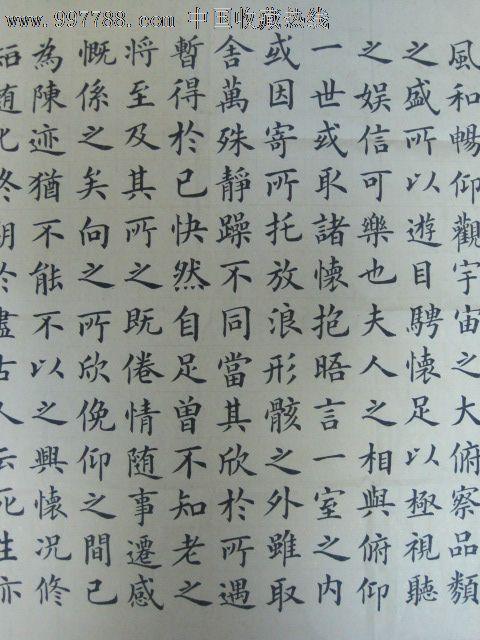 www.997788.com 中国收藏热线
風和暢仰觀宇宙之大俯察品類
之盛所以遊目騁懷足以極視聽
之娛信可樂也夫人之相與俯仰
一世或取諸懷抱晤言一室之內
或因寄所托放浪形骸之外雖取
舍萬殊靜躁不同當其欣於所遇
暫得於己快然自足曾不知老之
將至及其所之既倦情隨事遷感
慨係之矣向之所欣俛仰之間已
為陳迹猶不能不以之興懷況修
短隨化終期於盡古人云死生亦